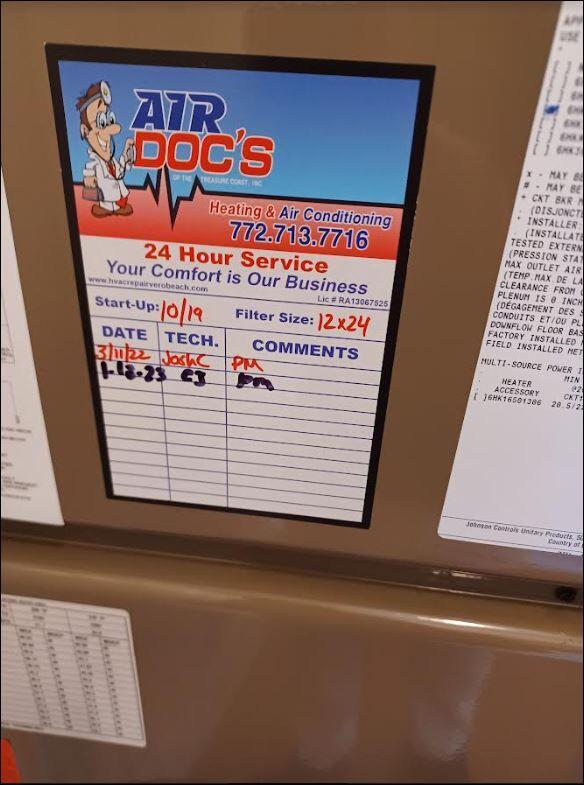 AIR
DOC'S
OF THE TREASURE COAST, INC
Heating & Air Conditioning
772.713.7716
24 Hour Service
Your Comfort is Our Business
www.hvacrepairverobeach.com
Lic # RA13067525
Start-Up: 10/19 Filter Size: 12x24
DATE TECH. COMMENTS
3/11/22 Josh C PM
1-12-23 CJ pm
USE
X - MAY BE
# - MAY BE
+ CKT BKR M
(DISJONCT
* INSTALLER
(INSTALLATE
TESTED EXTERN
(PRESSION STAT
MAX OUTLET AIR
(TEMP.MAX.DE LA
CLEARANCE FROM C
PLENUM IS 0 INCH
(DEGAGEMENT DES S
CONDUITS ET/OU PL
DOWNFLOW FLOOR BAS
FACTORY INSTALLED M
FIELD INSTALLED MET
MULTI-SOURCE POWER I
HEATER MIN
ACCESSORY CKT
[ ]6HK16501306 20.5/2
Johnson Controls Unitary Products, 5
Country of